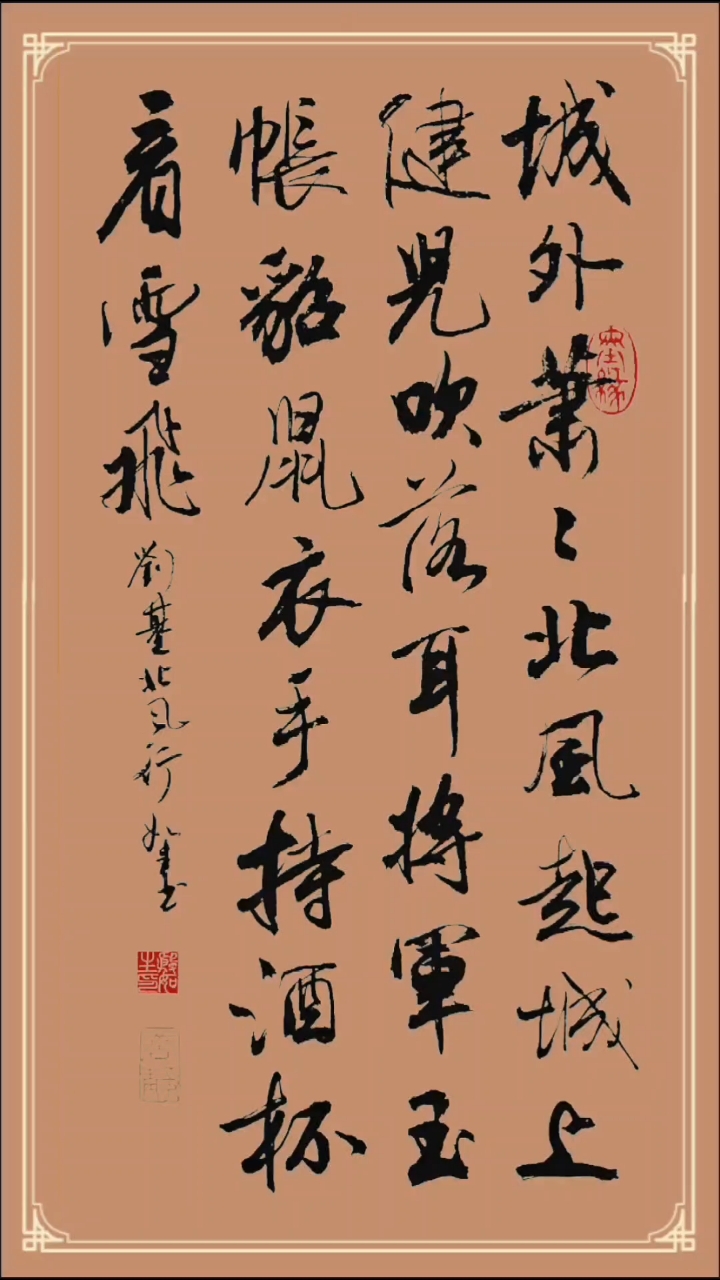 城外蕭〻北風起城上
健兒吹落耳將軍玉
帳貂鼠衣手持酒杯
看雪飛
劉基北風行 如生書
墨緣